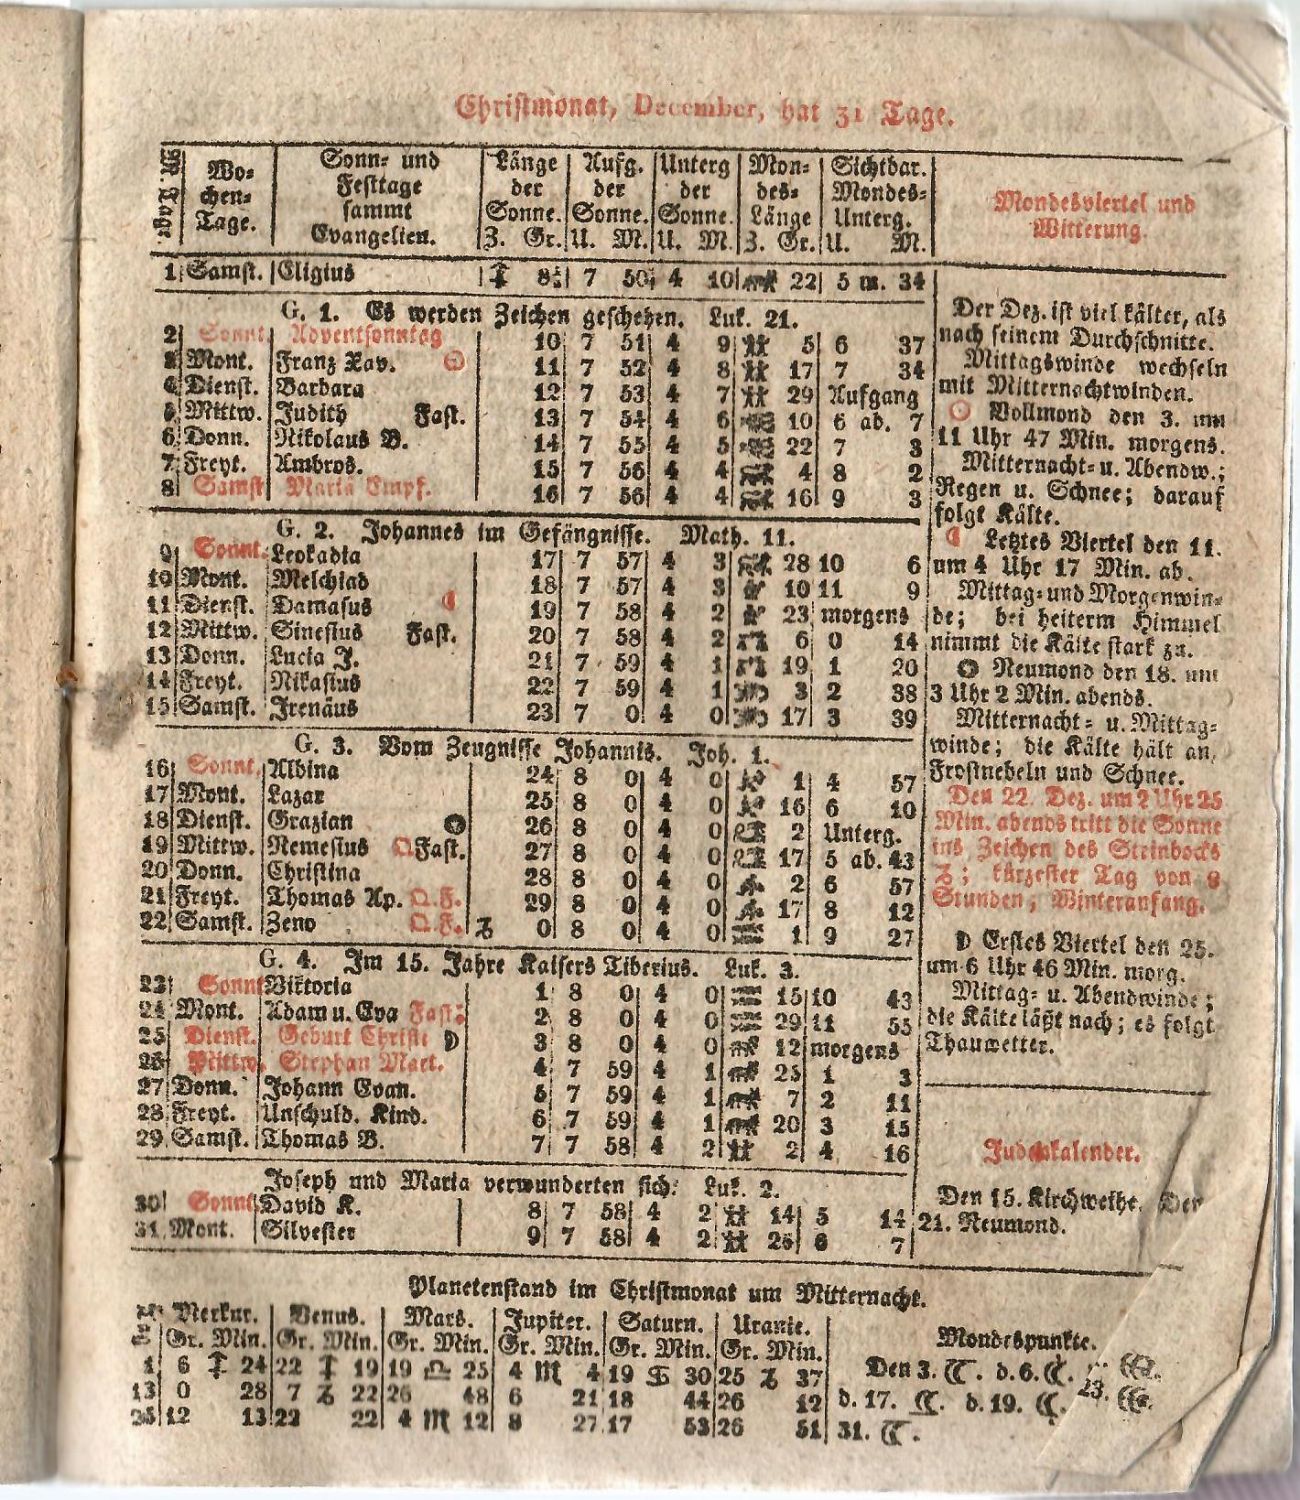 Christmonat, December, hat 31 Tage.
M. Tage. | Wo-chen-Tage. | Sonn- und Festtage sammt Evangelien. | Länge der Sonne. Z. Gr. | Aufg. der Sonne. U. M. | Unterg der Sonne. U. M. | Mon-des-Länge Z. Gr. | Sichtbar. Mondes-Unterg. U. M. | Mondesviertel und Witterung.
1 Samst. Eligius ♐ 8 7 50 4 10 22 5 m. 34
G. 1. Es werden Zeichen geschehen. Luk. 21.
2 Sonnt. Adventsonntag 10 7 51 4 9 5 6 37
3 Mont. Franz Xav. 11 7 52 4 8 17 7 34
4 Dienst. Barbara 12 7 53 4 7 29 Aufgang
5 Mittw. Judith Fast. 13 7 54 4 6 10 6 ab. 7
6 Donn. Nikolaus B. 14 7 55 4 5 22 7 3
7 Freyt. Ambros. 15 7 56 4 4 4 8 2
8 Samst Maria Empf. 16 7 56 4 4 16 9 3
G. 2. Johannes im Gefängnisse. Math. 11.
9 Sonnt. Leokadia 17 7 57 4 3 28 10 6
10 Mont. Melchiad 18 7 57 4 3 10 11 9
11 Dienst. Damasus 19 7 58 4 2 23 morgens
12 Mittw. Sinesius Fast. 20 7 58 4 2 6 0 14
13 Donn. Lucia J. 21 7 59 4 1 19 1 20
14 Freyt. Nikasius 22 7 59 4 1 3 2 38
15 Samst. Irenäus 23 7 0 4 0 17 3 39
G. 3. Vom Zeugnisse Johannis. Joh. 1.
16 Sonnt. Albina 24 8 0 4 0 1 4 57
17 Mont. Lazar 25 8 0 4 0 16 6 10
18 Dienst. Grazian 26 8 0 4 0 2 Unterg.
19 Mittw. Nemesius Q Fast. 27 8 0 4 0 17 5 ab. 43
20 Donn. Christina 28 8 0 4 0 2 6 57
21 Freyt. Thomas Ap. Q. F. 29 8 0 4 0 17 8 12
22 Samst. Zeno Q. F. ♑ 0 8 0 4 0 1 9 27
G. 4. Im 15. Jahre Kaisers Tiberius. Luk. 3.
23 Sonnt Viktoria 1 8 0 4 0 15 10 43
24 Mont. Adam u. Eva Fast. 2 8 0 4 0 29 11 55
25 Dienst. Geburt Christi ☽ 3 8 0 4 0 12 morgens
26 Mittw. Stephan Mart. 4 7 59 4 1 25 1 3
27 Donn. Johann Evan. 5 7 59 4 1 7 2 11
28 Freyt. Unschuld. Kind. 6 7 59 4 1 20 3 15
29 Samst. Thomas B. 7 7 58 4 2 2 4 16
Joseph und Maria verwunderten sich. Luk. 2.
30 Sonnt David K. 8 7 58 4 2 14 5 14
31 Mont. Silvester 9 7 58 4 2 26 6 7
Der Dez. ist viel kälter, als
nach seinem Durchschnitte.
Mittagswinde wechseln
mit Mitternachtwinden.
Vollmond den 3. um
11 Uhr 47 Min. morgens.
Mitternacht- u. Abendw.;
Regen u. Schnee; darauf
folgt Kälte.
Letztes Viertel den 11.
um 4 Uhr 17 Min. ab.
Mittag- und Morgenwin-
de; bei heiterm Himmel
nimmt die Kälte stark zu.
Neumond den 18. um
3 Uhr 2 Min. abends.
Mitternacht- u. Mittag-
winde; die Kälte hält an,
Frostnebeln und Schnee.
Den 22. Dez. um 2 Uhr 25
Min. abends tritt die Sonne
ins Zeichen des Steinbocks
♑; kürzester Tag von 8
Stunden; Winteranfang.
☽ Erstes Viertel den 25.
um 6 Uhr 46 Min. morg.
Mittag- u. Abendwinde;
die Kälte läßt nach; es folgt
Thauwetter.
Judenkalender.
Den 15. Kirchweihe. Den
21. Neumond.
Planetenstand im Christmonat um Mitternacht.
Merkur. | Venus. | Mars. | Jupiter. | Saturn. | Uranie.
Gr. Min. | Gr. Min. | Gr. Min. | Gr. Min. | Gr. Min. | Gr. Min.
1 6 ♐ 24 22 ♐ 19 19 ♎ 25 4 ♏ 4 19 ♋ 30 25 ♑ 37
13 0 28 7 ♑ 22 26 48 6 21 18 44 26 12
25 12 13 22 22 4 ♏ 12 8 27 17 53 26 51
Mondespunkte.
Den 3. d. 6.
d. 17. d. 19. 23.
31.